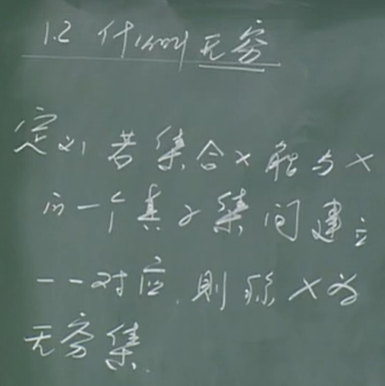 1.2 什么叫无穷
定义1 若集合X能与X
的一个真子集间建立
一一对应,则称X为
无穷集.